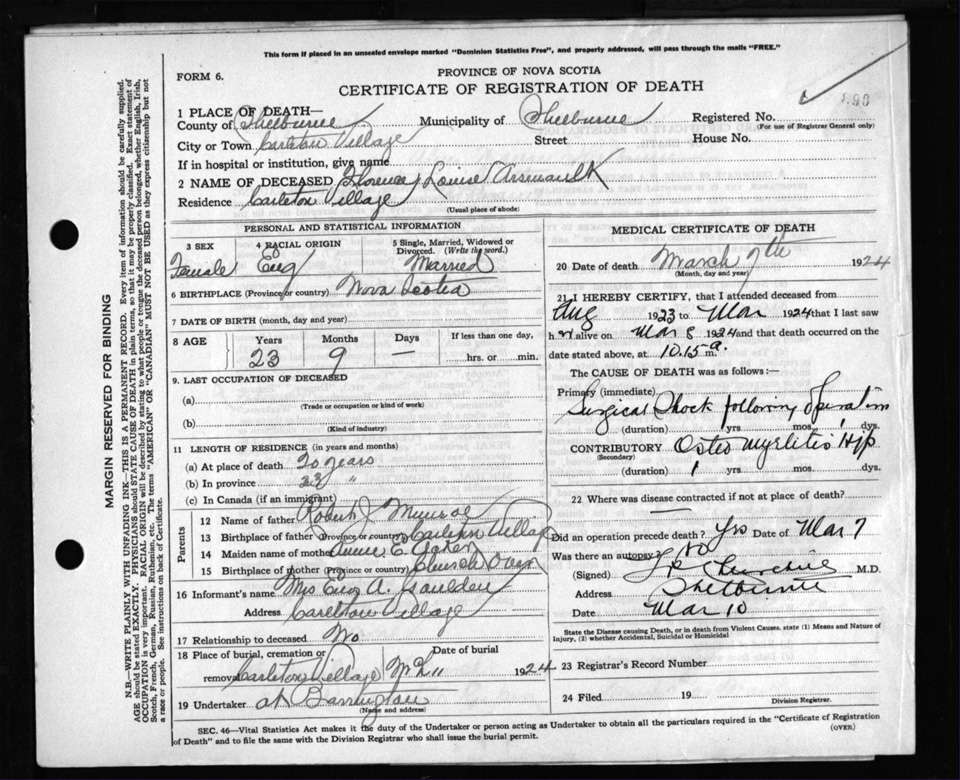 This form if placed in an unsealed envelope marked "Dominion Statistics Free", and properly addressed, will pass through the mails "FREE."
FORM 6.
PROVINCE OF NOVA SCOTIA
CERTIFICATE OF REGISTRATION OF DEATH
1 PLACE OF DEATH—
County of Shelburne Municipality of Shelburne Registered No.
(For use of Registrar General only)
City or Town Carleton Village Street House No.
If in hospital or institution, give name
2 NAME OF DECEASED Florence Louise Arseneault
Residence Carleton Village
(Usual place of abode)
PERSONAL AND STATISTICAL INFORMATION
3 SEX 4 RACIAL ORIGIN 5 Single, Married, Widowed or Divorced. (Write the word.)
Female Eng Married
6 BIRTHPLACE (Province or country) Nova Scotia
7 DATE OF BIRTH (month, day and year)
8 AGE Years Months Days If less than one day,
23 9 — hrs. or min.
9. LAST OCCUPATION OF DECEASED
(a)
(Trade or occupation or kind of work)
(b)
(Kind of industry)
11 LENGTH OF RESIDENCE (in years and months)
(a) At place of death 20 years
(b) In province 23 "
(c) In Canada (if an immigrant)
Parents
12 Name of father Robert J Munroe
13 Birthplace of father (Province or country) Carleton Village
14 Maiden name of mother Annie E. Acker
15 Birthplace of mother (Province or country) Church Over
16 Informant's name Mrs A.
Address Carleton Village
17 Relationship to deceased No
18 Place of burial, cremation or removal Date of burial
Carleton Village 11 1924
19 Undertaker at Barrington
(Name and address)
MEDICAL CERTIFICATE OF DEATH
20 Date of death March 9th 1924
(Month, day and year)
21 I HEREBY CERTIFY, that I attended deceased from
Aug 1923 to Mar 1924 that I last saw
her alive on Mar 8 1924 and that death occurred on
date stated above, at 10.15 a m.
The CAUSE OF DEATH was as follows:—
Primary (immediate)
Surgical Shock following Operation
(duration) yrs mos. 1 dys.
CONTRIBUTORY Osteo Myelitis Hip
(Secondary)
(duration) 1 yrs mos. dys.
22 Where was disease contracted if not at place of death?
Did an operation precede death? Yes Date of Mar 7
Was there an autopsy? No
(Signed) Churchill M.D.
Address Shelburne
Date Mar 10
State the Disease causing Death, or in death from Violent Causes, state (1) Means and Nature of Injury, (2) whether Accidental, Suicidal or Homicidal
23 Registrar's Record Number
24 Filed 19
Division Registrar.
SEC. 46—Vital Statistics Act makes it the duty of the Undertaker or person acting as Undertaker to obtain all the particulars required in the "Certificate of Registration of Death" and to file the same with the Division Registrar who shall issue the burial permit.
(OVER)
MARGIN RESERVED FOR BINDING
N.B.—WRITE PLAINLY WITH UNFADING INK—THIS IS A PERMANENT RECORD. Every item of information should be carefully supplied.
AGE should be stated EXACTLY. PHYSICIANS should STATE CAUSE OF DEATH in plain terms, so that it may be properly classified. Exact statement of
OCCUPATION is very important. RACIAL ORIGIN will be described by stating to what people or tongue the deceased person belonged, whether English, Irish,
Scotch, French, German, Russian, Ruthenian, etc. The terms "AMERICAN" or "CANADIAN" MUST NOT BE USED as they express citizenship but not
a race or people. See instructions on back of Certificate.